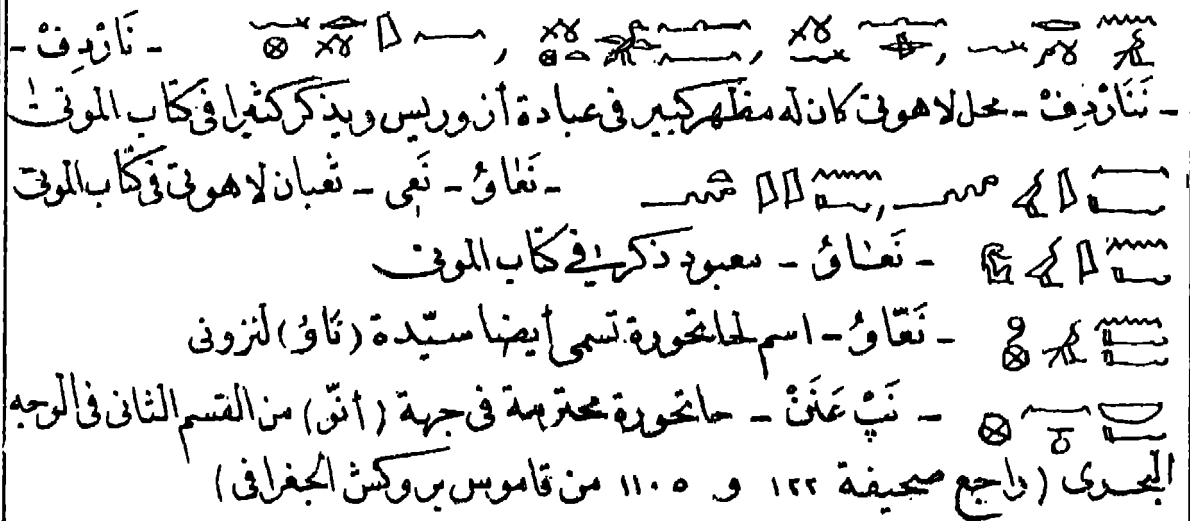 - نَارْدِفْ -
- نَنَارْدِفْ - محل لاهوتى كان له مظهر كبير فى عبادة أزوريس ويذكر كثيرا فى كتاب الموتى
- نَعَاوُ - نَعِى - ثعبان لاهوتى فى كتاب الموتى
- نَعَاوُ - معبود ذكر فى كتاب الموتى
- نَعَاوُ - اسم لحاتحورة تسمى أيضا سيّدة (نَاوُ) لنزونى
- نَبْ عَنَنْ - حاتحورة محترمة فى جهة (أنّو) من القسم الثانى فى الوجه
البحرى (راجع صحيفة ١٢٢ و ١١٠٥ من قاموس بروكش الجغرافى)